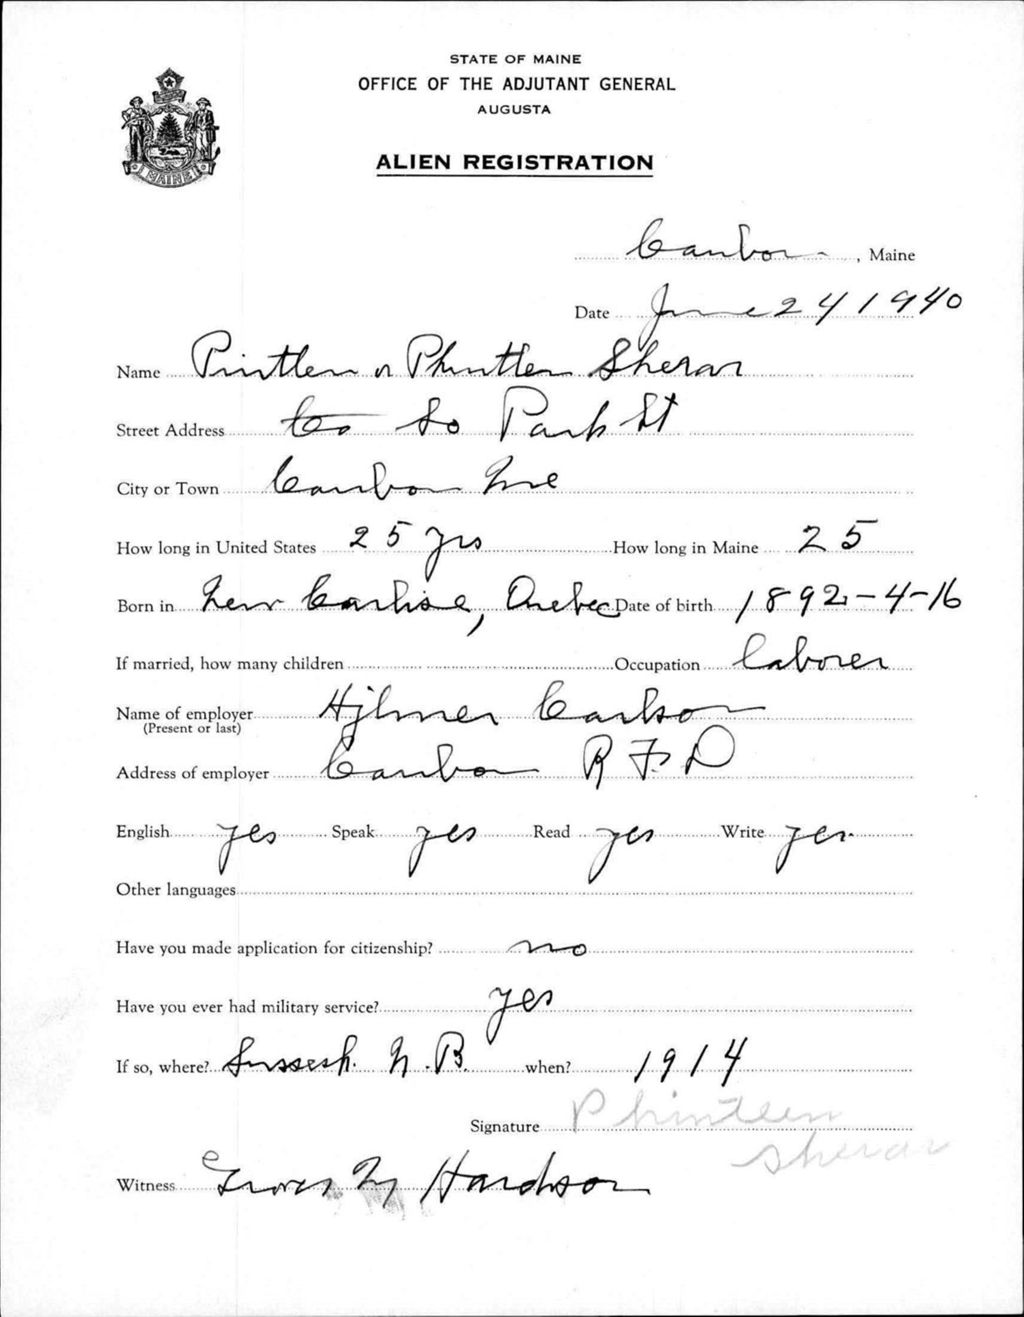 STATE OF MAINE
OFFICE OF THE ADJUTANT GENERAL
AUGUSTA
ALIEN REGISTRATION
MAINE
Caribou, Maine
Date June 24 1940
Name Pintlen or Phintlen Sherar
Street Address So Park St
City or Town Caribou Me
How long in United States 25 yrs How long in Maine 25
Born in New Carlisle, Quebec Date of birth 1892-4-16
If married, how many children Occupation Laborer
Name of employer Hjlmer Carlson
(Present or last)
Address of employer Caribou R F D
English yes Speak yes Read yes Write yes
Other languages
Have you made application for citizenship? no
Have you ever had military service? yes
If so, where? N.B. when? 1914
Signature Phintleen
Sherar
Witness Hardison